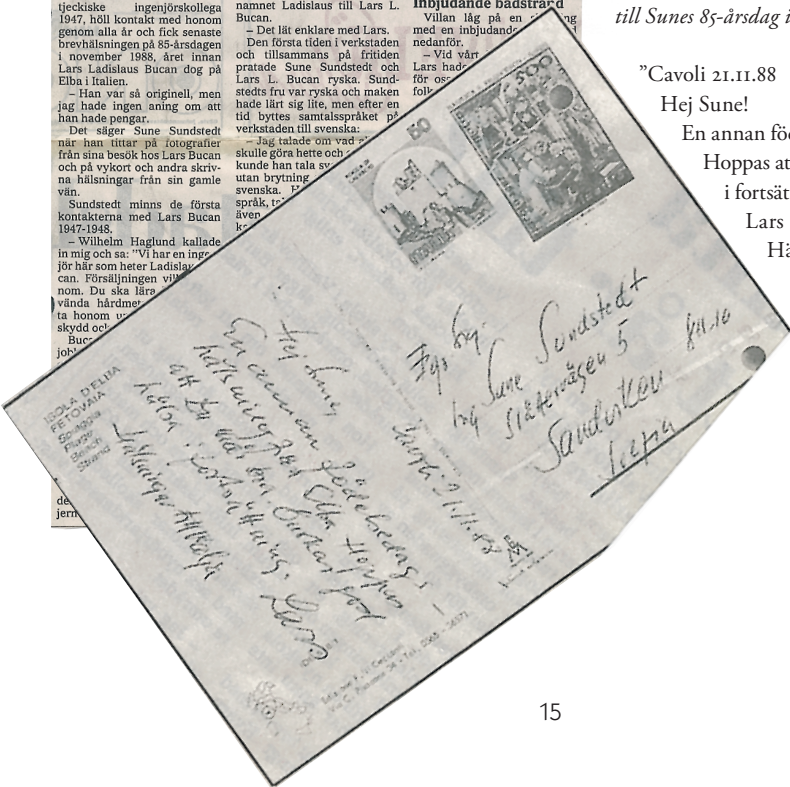 tjeckiske ingenjörskollega
1947, höll kontakt med honom
genom alla år och fick senaste
brevhälsningen på 85-årsdagen
i november 1988, året innan
Lars Ladislaus Bucan dog på
Elba i Italien.
– Han var så originell, men
jag hade ingen aning om att
han hade pengar.
Det säger Sune Sundstedt
när han tittar på fotografier
från sina besök hos Lars Bucan
och på vykort och andra skriv-
na hälsningar från sin gamle
vän.
Sundstedt minns de första
kontakterna med Lars Bucan
1947-1948.
– Wilhelm Haglund kallade
in mig och sa: "Vi har en inge
jör här som heter Ladislau
can. Försäljningen vil
nom. Du ska lära
vända hårdmet
ta honom
skydd och
Buca
job
de
jern
namnet Ladislaus till Lars L.
Bucan.
– Det lät enklare med Lars.
Den första tiden i verkstaden
och tillsammans på fritiden
pratade Sune Sundstedt och
Lars L. Bucan ryska. Sund-
stedts fru var ryska och maken
hade lärt sig lite, men efter en
tid byttes samtalsspråket på
verkstaden till svenska:
– Jag talade om vad a
skulle göra hette och
kunde han tala sv
utan brytning
svenska. H
språk, ta
även
Inbjudande badstrand
Villan låg på en
med en inbjudande
nedanför.
– Vid vårt
Lars hade
för oss
folk
till Sunes 85-årsdag i
"Cavoli 21.11.88
Hej Sune!
En annan föd
Hoppas at
i fortsät
Lars
Hä
50
500
ISOLA D'ELBA
FETOVAIA
Spiaggia
Plage
Beach
Strand
Hej Sune,
En annan födelsedags-
hälsning från Elba. Hoppas
att Du mår bra. Önskar god
hälsa i fortsättning.
Lars
Cavoli 21.11.88
Ing Sune Sundstedt
Slättervägen 5
Sandviken
15